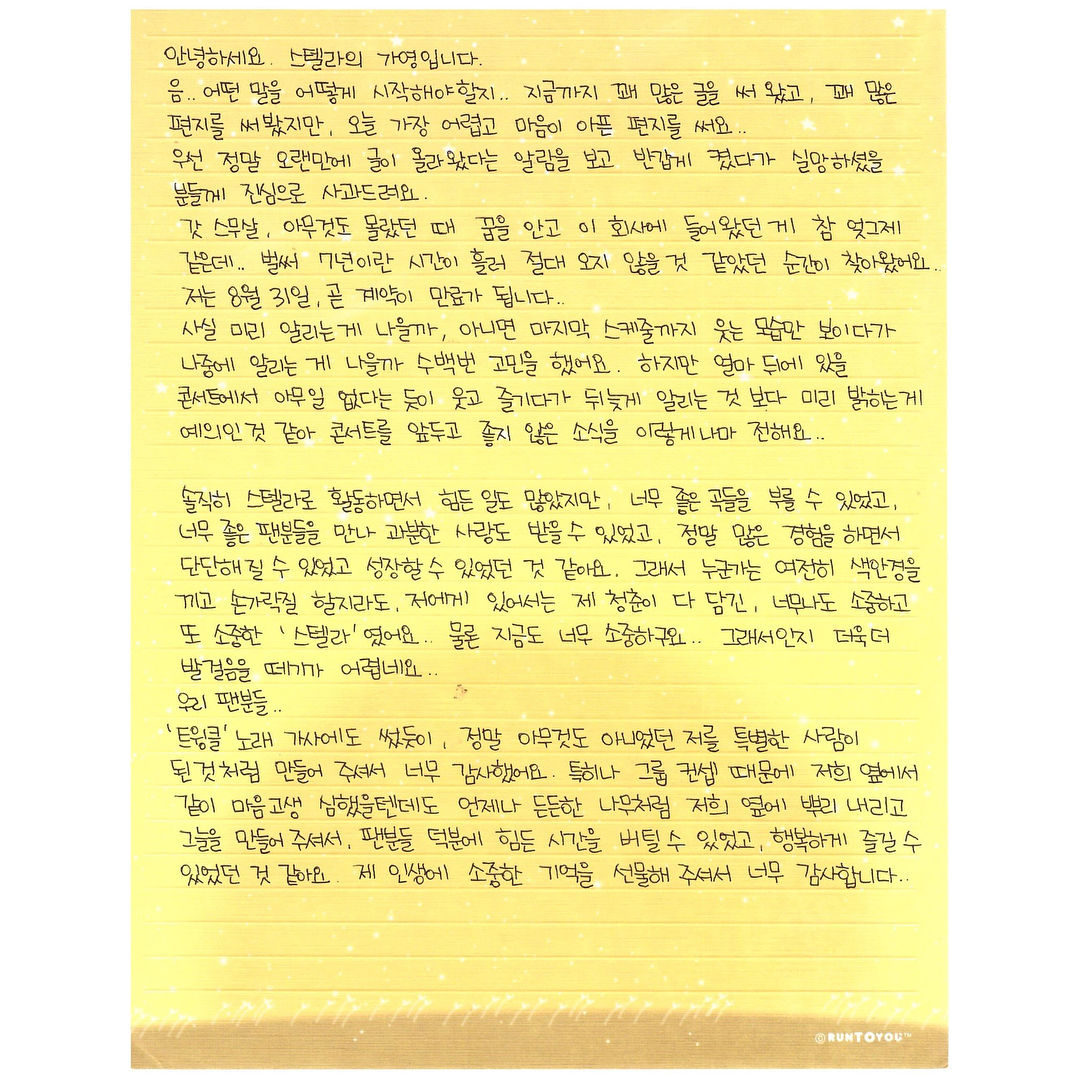 안녕하세요. 스텔라의 가영입니다.
음.. 어떤 말을 어떻게 시작해야할지.. 지금까지 꽤 많은 글을 써 왔고, 꽤 많은
편지를 써봤지만, 오늘 가장 어렵고 마음이 아픈 편지를 써요..
우선 정말 오랜만에 글이 올라왔다는 알람을 보고 반갑게 켰다가 실망하셨을
분들께 진심으로 사과드려요.
갓 스무살, 아무것도 몰랐던 때 꿈을 안고 이 회사에 들어왔던 게 참 엊그제
같은데.. 벌써 7년이란 시간이 흘러 절대 오지 않을 것 같았던 순간이 찾아왔어요..
저는 8월 31일, 곧 계약이 만료가 됩니다..
사실 미리 알리는게 나을까, 아니면 마지막 스케줄까지 웃는 모습만 보이다가
나중에 알리는 게 나을까 수백번 고민을 했어요. 하지만 얼마 뒤에 있을
콘서트에서 아무일 없다는 듯이 웃고 즐기다가 뒤늦게 알리는 것 보다 미리 밝히는게
예의인 것 같아 콘서트를 앞두고 좋지 않은 소식을 이렇게나마 전해요..
솔직히 스텔라로 활동하면서 힘든 일도 많았지만, 너무 좋은 곡들을 부를 수 있었고,
너무 좋은 팬분들을 만나 과분한 사랑도 받을 수 있었고, 정말 많은 경험을 하면서
단단해질 수 있었고 성장할 수 있었던 것 같아요. 그래서 누군가는 여전히 색안경을
끼고 손가락질 할지라도, 저에게 있어서는 제 청춘이 다 담긴, 너무나도 소중하고
또 소중한 '스텔라'였어요.. 물론 지금도 너무 소중하구요.. 그래서인지 더욱 더
발걸음을 떼기가 어렵네요..
우리 팬분들..
'트윙클' 노래 가사에도 썼듯이, 정말 아무것도 아니었던 저를 특별한 사람이
된 것처럼 만들어 주셔서 너무 감사했어요. 특히나 그룹 컨셉 때문에 저희 옆에서
같이 마음고생 심했을텐데도 언제나 든든한 나무처럼 저희 옆에 뿌리 내리고
그늘을 만들어 주셔서, 팬분들 덕분에 힘든 시간을 버틸 수 있었고, 행복하게 즐길 수
있었던 것 같아요. 제 인생에 소중한 기억을 선물해 주셔서 너무 감사합니다..
© RUNTOYOU™